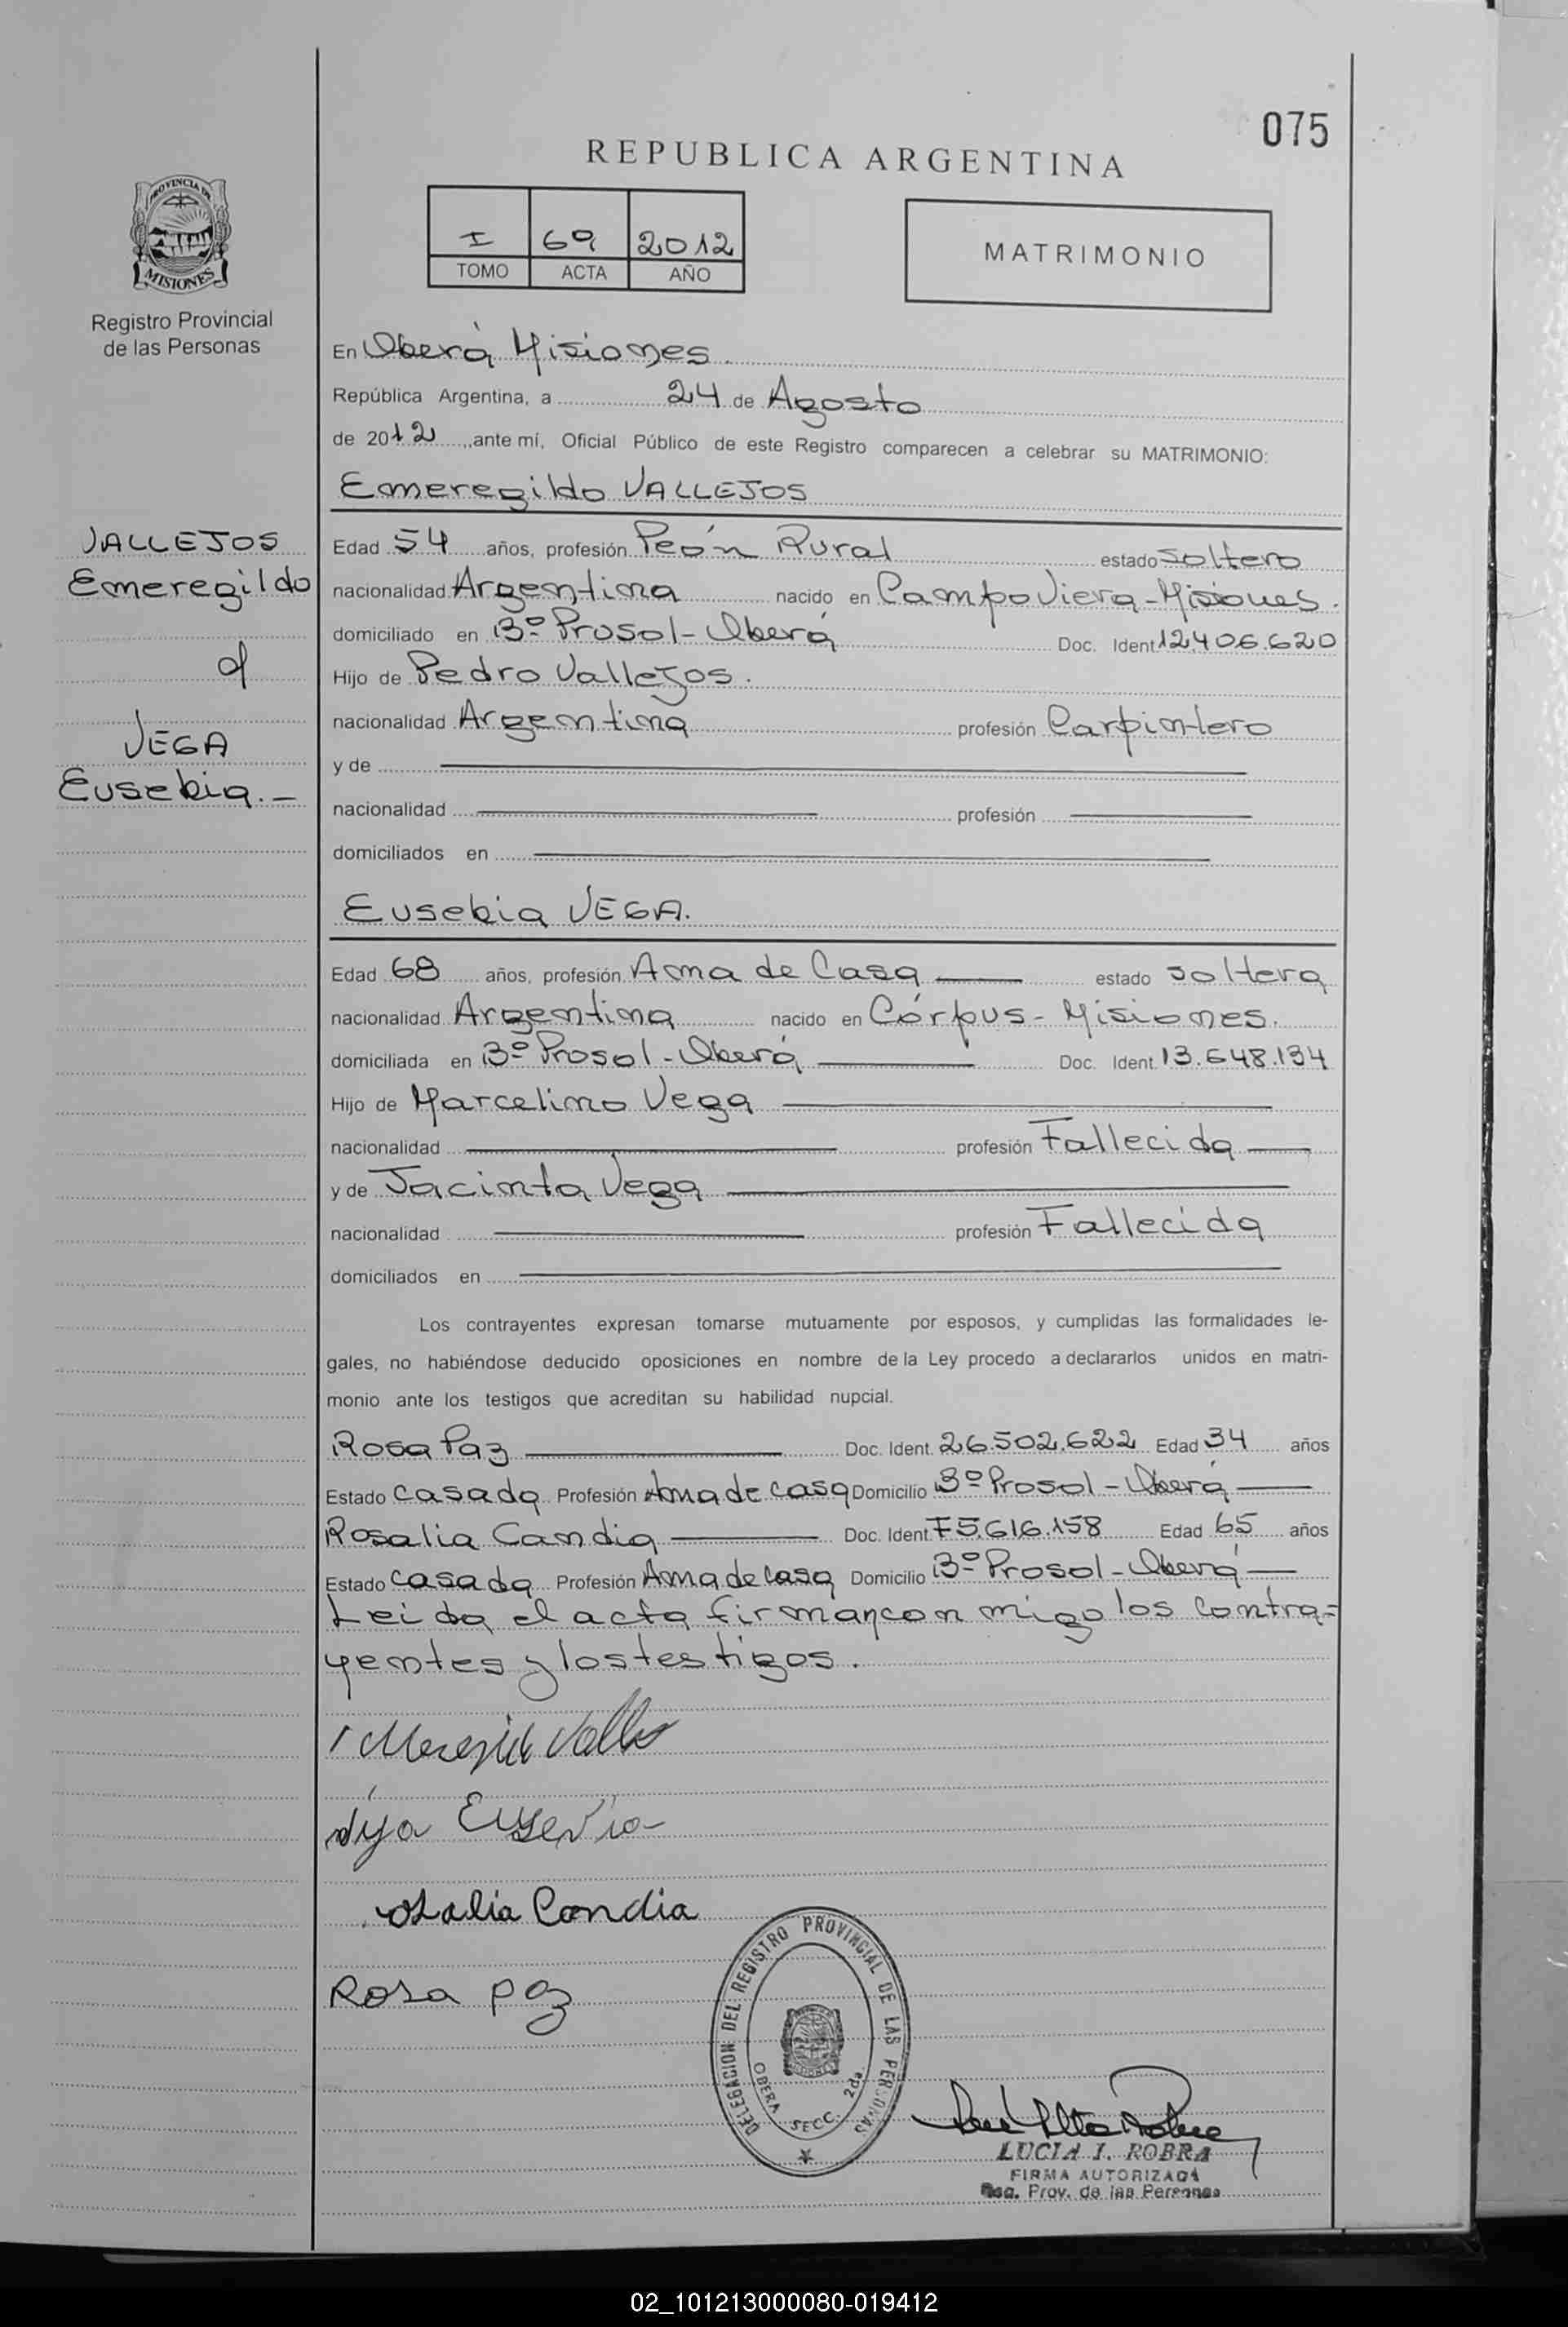 075
REPUBLICA ARGENTINA
PROVINCIA DE
MISIONES
Registro Provincial
de las Personas
I 69 2012
TOMO ACTA AÑO
MATRIMONIO
En Oberá Misiones.
República Argentina, a 24 de Agosto
de 2012, ante mí, Oficial Público de este Registro comparecen a celebrar su MATRIMONIO:
Emeregildo VALLEJOS
VALLEJOS
Emeregildo
VEGA
Eusebia.-
Edad 54 años, profesión Peón Rural estado soltero
nacionalidad Argentina nacido en Campo Viera-Misiones.
domiciliado en Bº Prosol-Oberá Doc. Ident 12.406.620
Hijo de Pedro Vallejos.
nacionalidad Argentina profesión Carpintero
y de
nacionalidad profesión
domiciliados en
Eusebia VEGA.
Edad 68 años, profesión Ama de Casa estado soltera
nacionalidad Argentina nacido en Córpus-Misiones.
domiciliada en Bº Prosol-Oberá Doc. Ident. 13.648.134
Hijo de Marcelino Vega
nacionalidad profesión Fallecida
y de Jacinta Vega
nacionalidad profesión Fallecida
domiciliados en
Los contrayentes expresan tomarse mutuamente por esposos, y cumplidas las formalidades le-
gales, no habiéndose deducido oposiciones en nombre de la Ley procedo a declararlos unidos en matri-
monio ante los testigos que acreditan su habilidad nupcial.
Rosa Paz Doc. Ident. 26.502.622 Edad 34 años
Estado casada Profesión Ama de casa Domicilio Bº Prosol-Oberá
Rosalia Candia Doc. Ident F5.616.158 Edad 65 años
Estado casada Profesión Ama de casa Domicilio Bº Prosol-Oberá
Leida el acta firman con migo los contra=
yentes y los testigos.
Eusevia
Candia
Rosa paz
DELEGACION DEL REGISTRO PROVINCIAL DE LAS PERSONAS
OBERA SECC. 2da.
LUCIA I. ROBRA
FIRMA AUTORIZADA
Reg. Prov. de las Personas
02_101213000080-019412